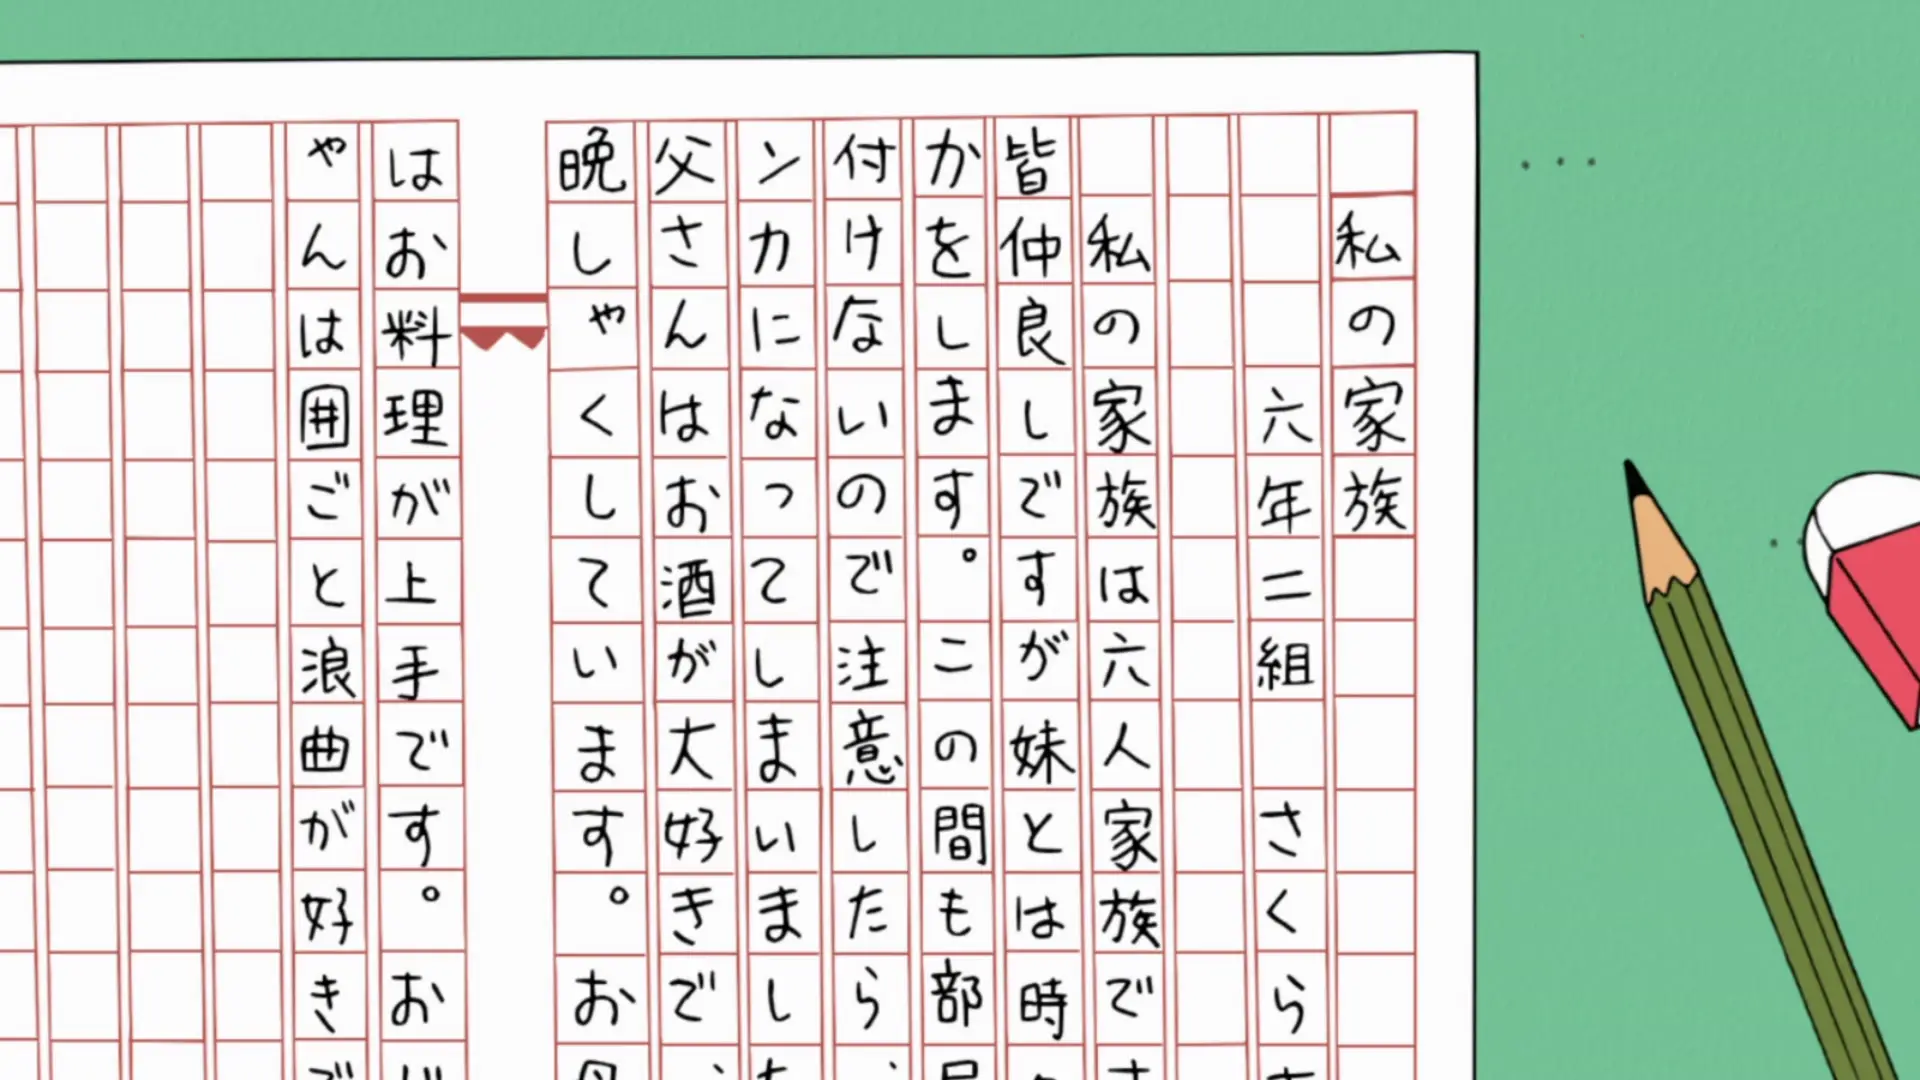 私の家族
六年二組 さくら
私の家族は六人家族で
皆仲良しですが妹とは時
かをします。この間も部
付けないので注意したら
ンカになってしまいまし
父さんはお酒が大好きで
晩しゃくしています。お
はお料理が上手です。お
ゃんは囲ごと浪曲が好き